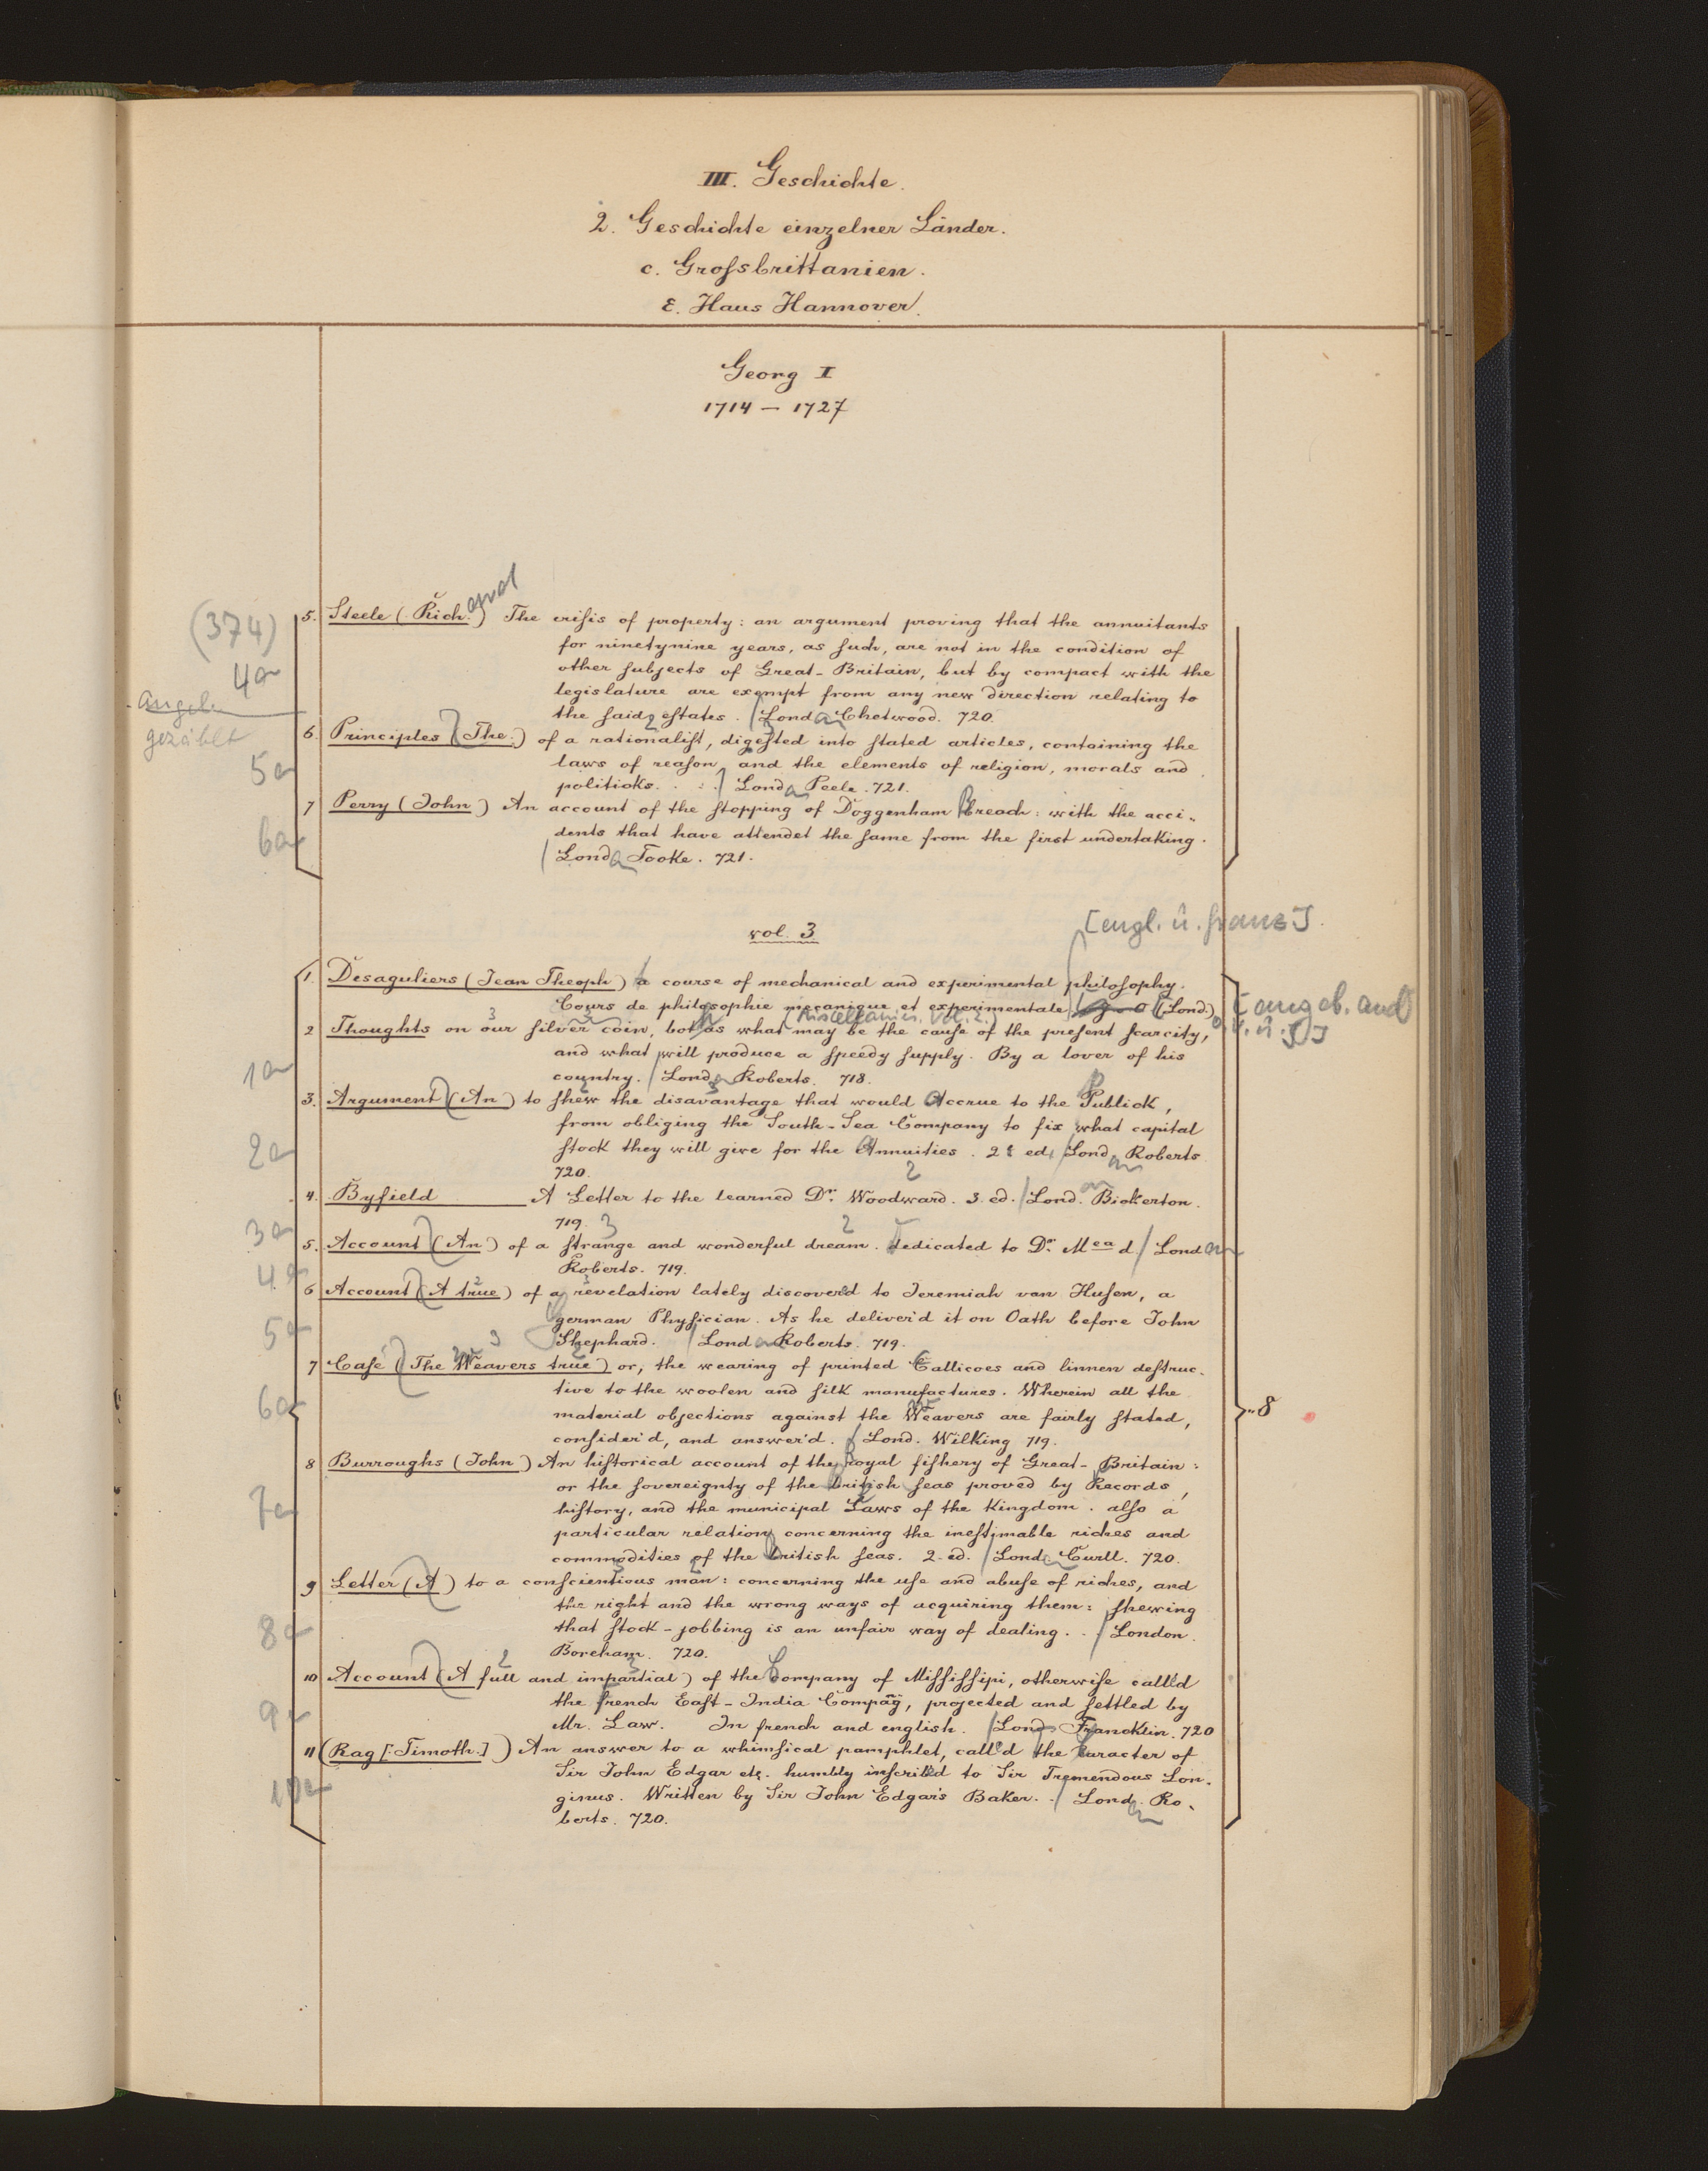 III. Geschichte.
2. Geschichte einzelner Länder.
c. Grossbrittanien.
ε. Haus Hannover.
Georg I
1714 – 1727
(374)
5. Steele (Rich.) The crisis of property: an argument proving that the annuitants
for ninetynine years, as such, are not in the condition of
other subjects of Great-Britain, but by compact with the
4a
legislature are exempt from any new direction relating to
the said estates. Lond. Chetwood. 720.
gezählt
6. Principles (The.) of a rationalist, digested into stated articles, containing the
5a
laws of reason and the elements of religion, morals and
politicks. . . Lond. Peele. 721.
7 Perry (John) An account of the stopping of Doggenham Breach: with the acci-
6a
dents that have attendet the same from the first undertaking.
Lond. Tooke. 721.
[engl. u. franz].
vol. 3
1. Desaguliers (Jean Theoph) a course of mechanical and experimental philosophy.
Cours de philosophie mecanique et experimentale (Lond.)
[angeb. and
2 Thoughts on our silver coin, both as what may be the cause of the present scarcity,
and what will produce a speedy supply. By a lover of his
1a
country. Lond. Roberts. 718.
3. Argument (An) to shew the disavantage that would Accrue to the Publick,
from obliging the South-Sea Company to fix what capital
2a
stock they will give for the Annuities. 2d ed. Lond. Roberts
720.
4. Byfield A Letter to the learned Dr. Woodward. 3. ed. Lond. Bickerton.
719.
3a
5. Account (An) of a strange and wonderful dream. Dedicated to Dr. Mead. Lond
Roberts. 719.
4a
6 Account (A true) of a revelation lately discoverd to Jeremiah van Husen, a
german Physician. As he deliver'd it on Oath before John
5a
Shephard. Lond. Roberts. 719.
7 Case (The Weavers true) or, the wearing of printed Callicoes and linnen destruc-
tive to the woolen and silk manufactures. Wherein all the
6a
material objections against the Weavers are fairly stated,
consider'd, and answer'd. Lond. Wilking 719.
8
8 Burroughs (John) An historical account of the Royal fishery of Great-Britain:
or the sovereignty of the british seas proved by Records,
7a
history, and the municipal Laws of the Kingdom. also a
particular relation concerning the inestimable riches and
commodities of the British seas. 2. ed. Lond. Curll. 720.
9 Letter (A) to a conscientious man: concerning the use and abuse of riches, and
the right and the wrong ways of acquiring them: shewing
8a
that stock-jobbing is an unfair way of dealing. . London.
Boreham. 720.
10 Account (A full and impartial) of the Company of Missisipi, otherwise call'd
9a
the french East-India Company, projected and settled by
Mr. Law. In french and english. Lond. Francklin. 720
11 (Rag [: Timoth:]) An answer to a whimsical pamphlet, call'd the Caracter of
10a
Sir John Edgar etc. humbly inscribd to Sir Tremendous Lon-
ginus. Written by Sir John Edgar's Baker. . Lond. Ro-
berts. 720.